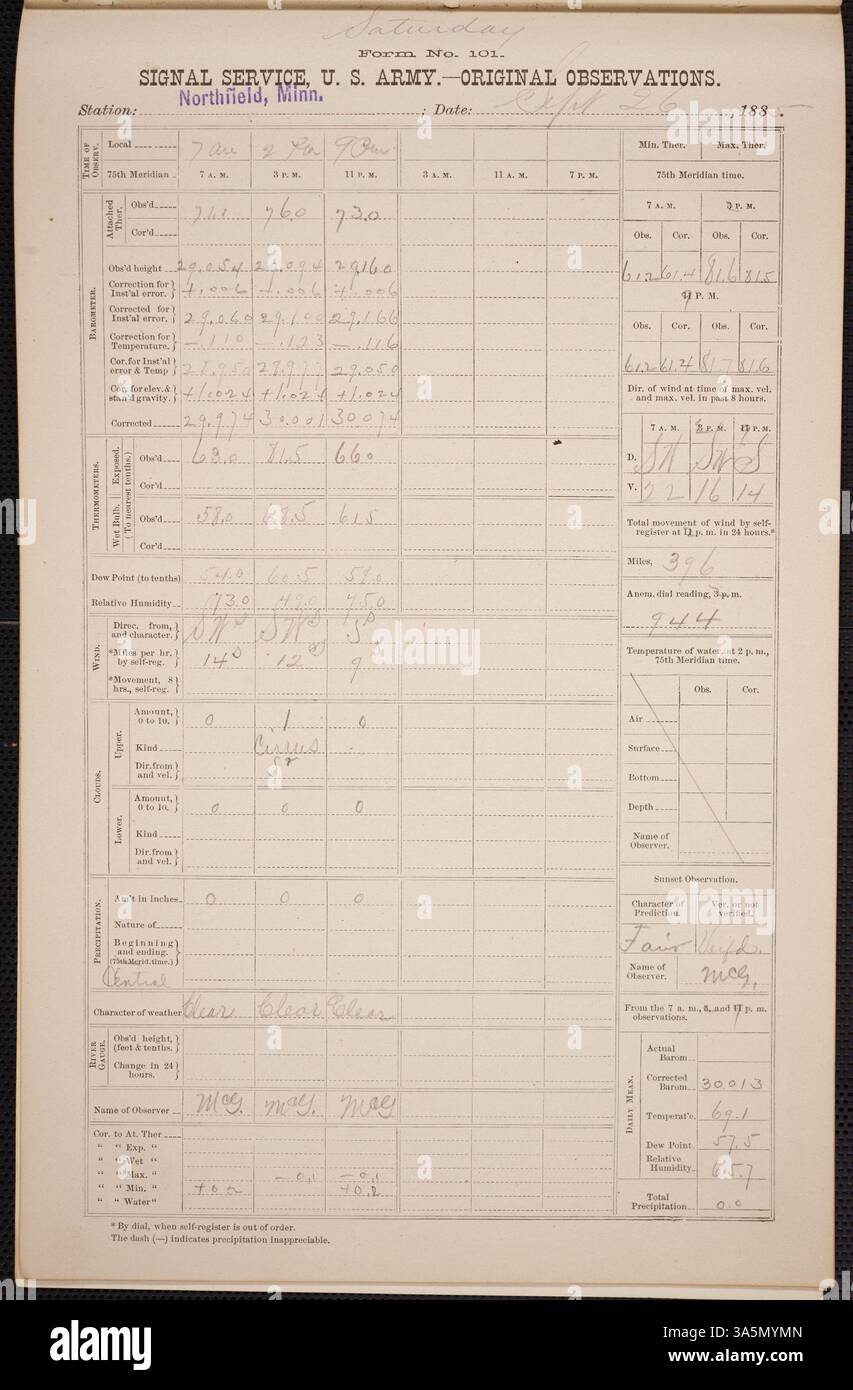 Saturday
Form No. 101.
SIGNAL SERVICE, U. S. ARMY.—ORIGINAL OBSERVATIONS.
Station: Northfield, Minn. ; Date: Sept 26, 1885.
TIME OF OBSERV.
Local 7 am 2 Pm 9 Pm
75th Meridian 7 A. M. 3 P. M. 11 P. M. 3 A. M. 11 A. M. 7 P. M.
BAROMETER.
Attached Ther.
Obs'd 71.1 76.0 73.0
Cor'd
Obs'd height 29.054 29.094 29.160
Correction for Inst'al error. +.006 +.006 +.006
Corrected for Inst'al error. 29.060 29.100 29.166
Correction for Temperature. —.110 —.123 —.116
Cor. for Inst'al error & Temp 28.950 28.977 29.050
Cor. for elev. & stan'd gravity. +1.024 +1.024 +1.024
Corrected 29.974 30.001 30074
THERMOMETERS.
(To nearest tenths.)
Exposed.
Obs'd 63.0 81.5 66.0
Cor'd
Wet Bulb.
Obs'd 58.0 68.5 61.5
Cor'd
Dew Point (to tenths) 54.0 60.5 58.0
Relative Humidity 73.0 49.0 75.0
WIND.
Direc. from, and character. SW SW S
*Miles per hr. by self-reg. 14 12 9
*Movement, 8 hrs., self-reg.
CLOUDS.
Upper.
Amount, 0 to 10. 0 1 0
Kind Cirrus
Dir. from and vel.
Lower.
Amount, 0 to 10. 0 0 0
Kind
Dir. from and vel.
PRECIPITATION.
Am't in inches. 0 0 0
Nature of
Beginning and ending. (75th Merid. time.)
Central
Character of weather Clear Clear Clear
RIVER GAUGE.
Obs'd height, (feet & tenths.)
Change in 24 hours.
Name of Observer McG. McG. McG
Cor. to At. Ther
" " Exp. "
" " Wet "
" " Max. " —0.1 —0.1
" " Min. " +0.2 +0.2
" " Water "
* By dial, when self-register is out of order.
The dash (—) indicates precipitation inappreciable.
Min. Ther. Max. Ther.
75th Meridian time.
7 A. M. 3 P. M.
Obs. Cor. Obs. Cor.
61.2 61.4 81.6 81.5
11 P. M.
Obs. Cor. Obs. Cor.
61.2 61.4 81.7 81.6
Dir. of wind at time of max. vel. and max. vel. in past 8 hours.
7 A. M. 3 P. M. 11 P. M.
D. SW SW S
V. 22 16 14
Total movement of wind by self-register at 11 p. m. in 24 hours.*
Miles, 396
Anem. dial reading, 3 p. m.
944
Temperature of water, at 2 p. m., 75th Meridian time.
Obs. Cor.
Air
Surface
Bottom
Depth
Name of Observer.
Sunset Observation.
Character of Prediction. Ver. or not verified.
Fair Verfd.
Name of Observer. McG.
From the 7 a. m., 3, and 11 p. m. observations.
DAILY MEAN.
Actual Barom.
Corrected Barom. 30013
Temperat'e. 69.1
Dew Point. 57.5
Relative Humidity. 65.7
Total Precipitation. 0.0
alamy
www.alamy.com
3A5MYMN